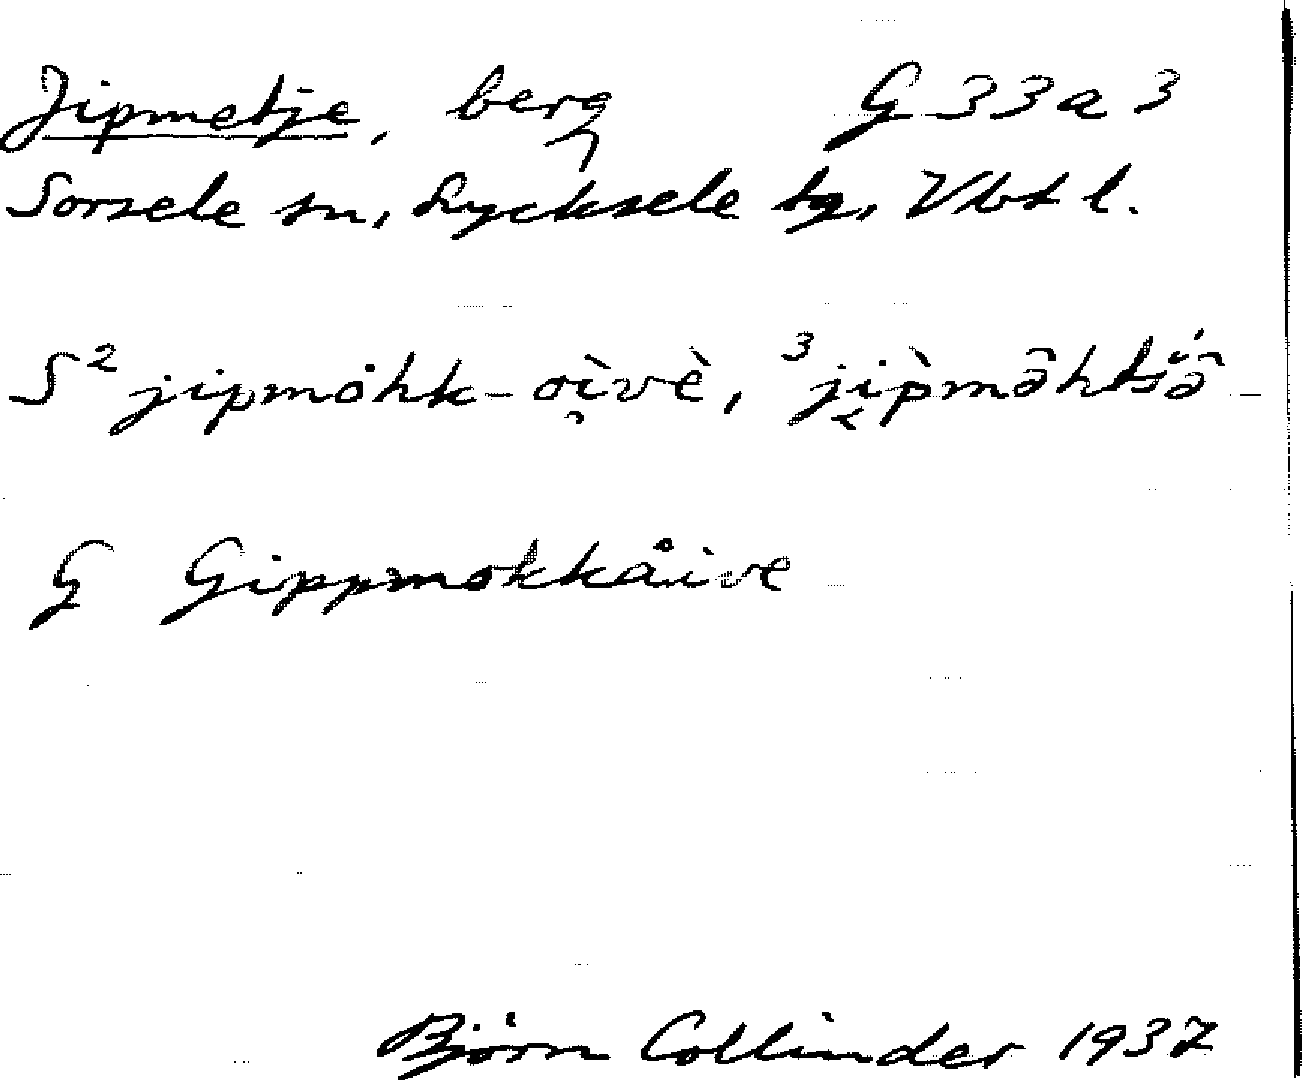 Jipmetje, berg G 33 a 3
Sorsele sn, Lycksele tg, Vbtl.
S ² jipmòhk-oi̯vè,
G Gippmokkåive
Björn Collinder 1937